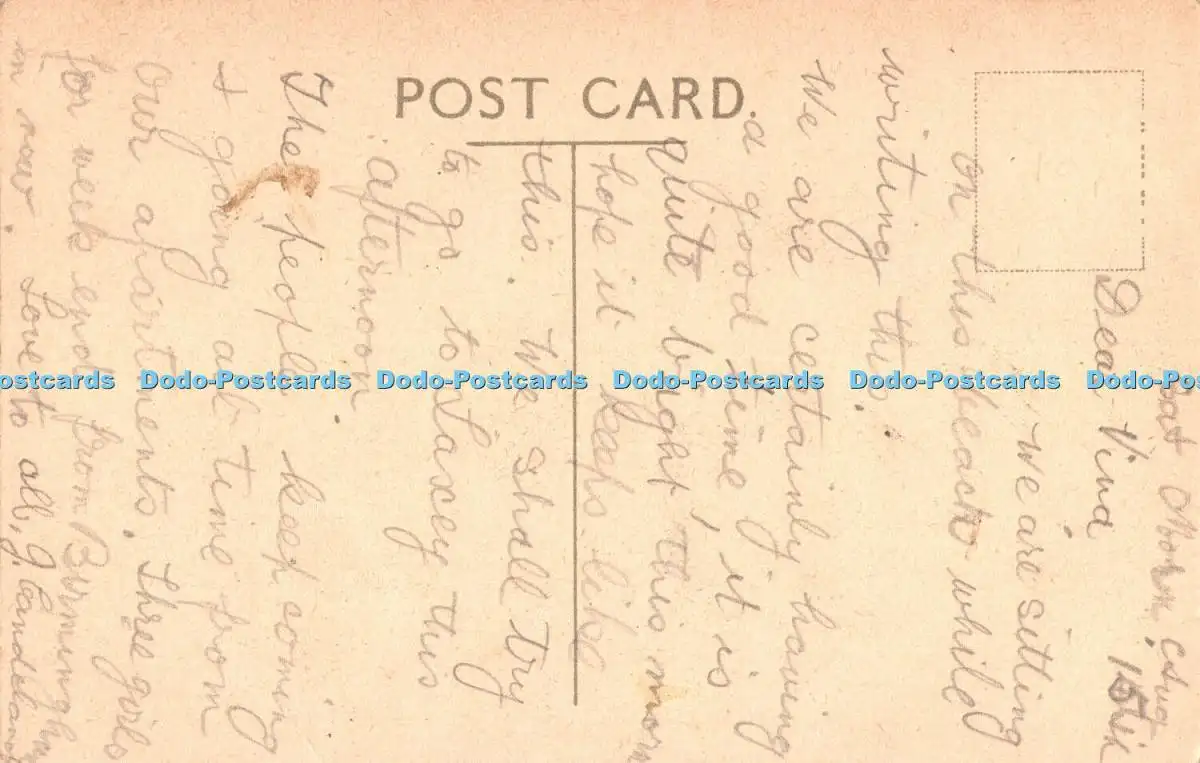 POST CARD.
Sat Morn, Aug
15th
Dear Vina
We are sitting
on this beach while
writing this.
We are certainly having
a good time, it is
quite bright this morn
hope it keeps like
this. We shall try
to go to Lascey this
afternoon
The people keep coming
& going all time from
our apartments. Three girls
for week end from Birmingham
in now. Love to all, J.
Dodo-Postcards Dodo-Postcards Dodo-Postcards Dodo-Postcards Dodo-Postcards Dodo-Postcards